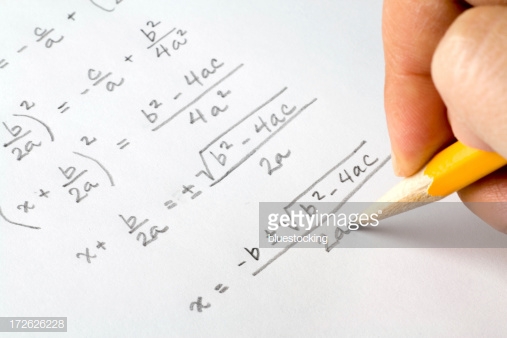 = - c/a + (
b/2a)² = - c/a + b²/4a²
(x + b/2a)² = b² - 4ac / 4a²
x + b/2a = ± √b² - 4ac / 2a
x = -b ± √b² - 4ac / 2a
gettyimages®
bluestocking
172626228